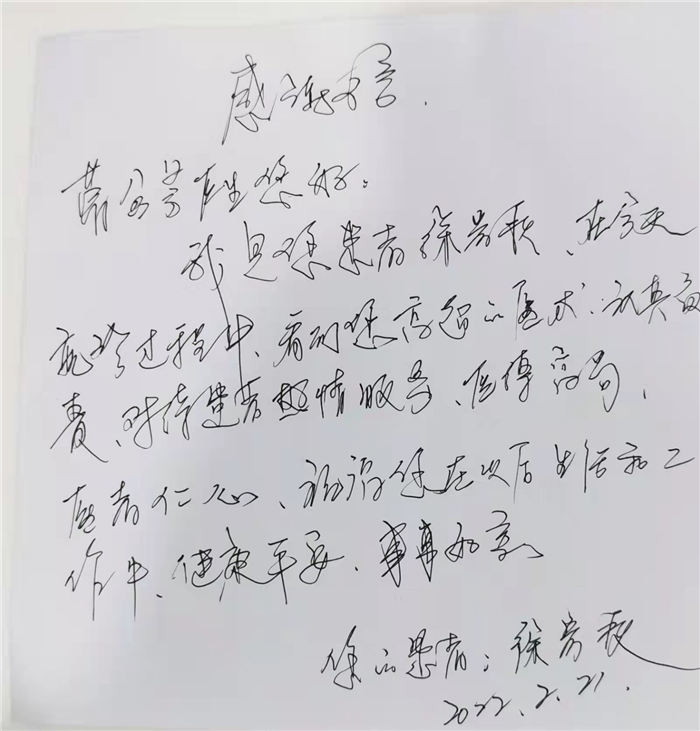 感谢信.
医生您好:
我是您患者徐芳秋、在今天
就诊过程中、看到您高超的医术、认真负
责、对待患者热情服务、医德高尚、
医者仁心、祝福您在以后生活和工
作中、健康平安、事事如意
您的患者:徐芳秋
2022.2.21.